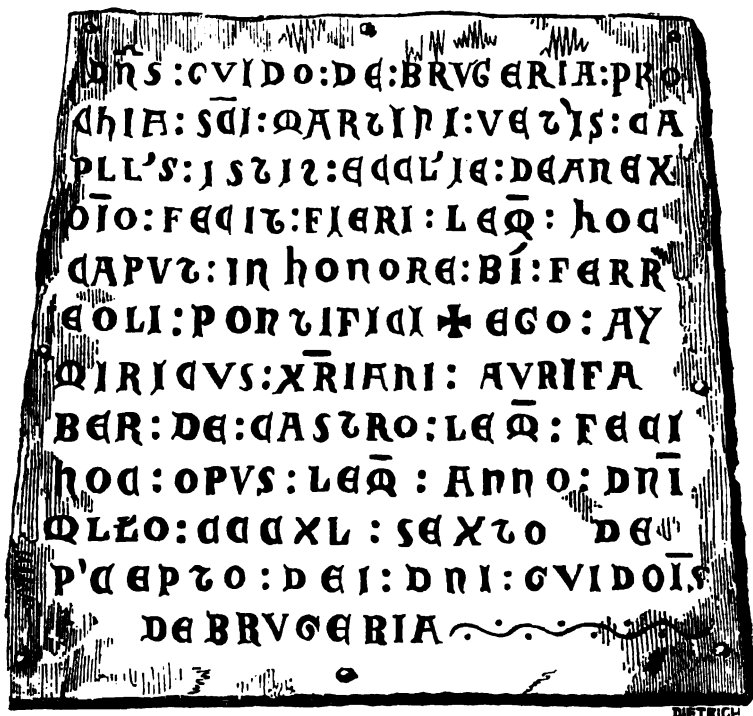 DN̄S : GVIDO : DE : BRVGERIA : PRO
CHIA : SC̄I : MARTINI : VET'IS : CA
PLL'S : ISTIS : ECCL'IE : DEANEX
OĪO : FECIT : FIERI : LEM̄ : HOC
CAPVT : IN HONORE : BÍ : FERR
EOLI : PONTIFICI ✠ EGO : AY
MIRICVS : XR̄IANI : AVRIFA
BER : DE : CASTRO : LEM̄ : FECI
HOC : OPVS : LEM̄ : ANNO : DNĪ
MLŁO : CCCXL : SEXTO DE
P'CEPTO : DEI : DNI : GVIDOĪS
DE BRVGERIA
DIETRICH